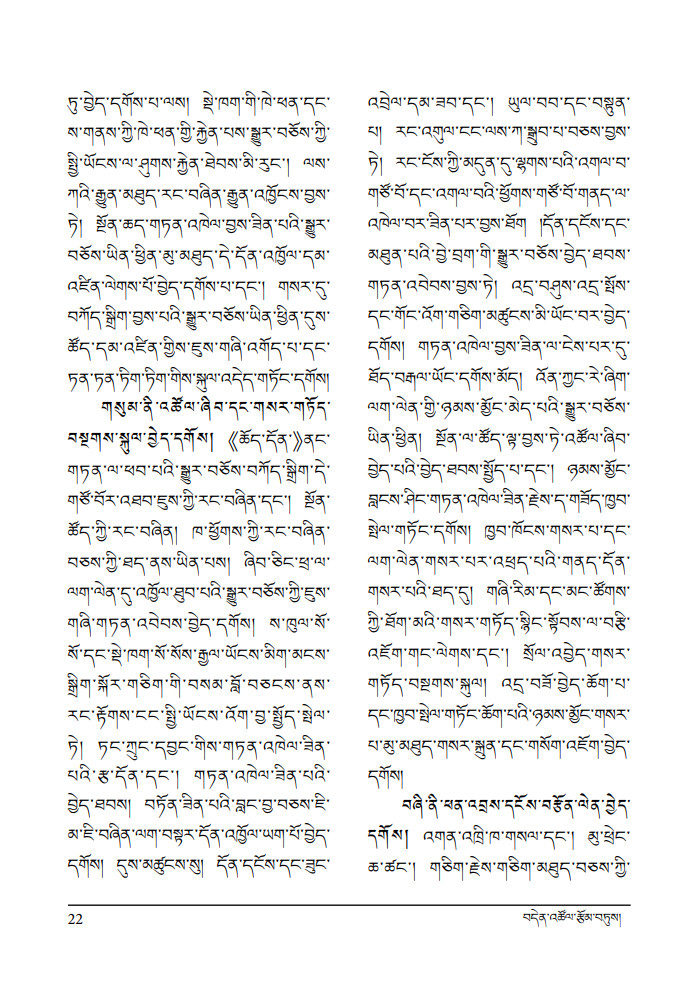 ཏུ་བྱེད་དགོས་པ་ལས། སྡེ་ཁག་གི་ཁེ་ཕན་དང་
ས་གནས་ཀྱི་ཁེ་ཕན་གྱི་རྐྱེན་པས་སྒྱུར་བཅོས་ཀྱི་
སྤྱི་ཡོངས་ལ་ཤུགས་རྐྱེན་ཐེབས་མི་རུང་། ལས་
ཀའི་རྒྱུན་མཐུད་རང་བཞིན་རྒྱུན་འཁྱོངས་བྱས་
ཏེ། སྔོན་ཆད་གཏན་འཁེལ་བྱས་ཟིན་པའི་སྒྱུར་
བཅོས་ཡིན་ཕྱིན་མུ་མཐུད་དེ་དོན་འཁྱོལ་དམ་
འཛིན་ལེགས་པོ་བྱེད་དགོས་པ་དང་། གསར་དུ་
བཀོད་སྒྲིག་བྱས་པའི་སྒྱུར་བཅོས་ཡིན་ཕྱིན་དུས་
ཚོད་དམ་འཛིན་གྱིས་ཇུས་གཞི་འགོད་པ་དང་
ཏན་ཏན་ཏིག་ཏིག་གིས་སྐུལ་འདེད་གཏོང་དགོས།
གསུམ་ནི་འཚོལ་ཞིབ་དང་གསར་གཏོད་
བསྔགས་སྐུལ་བྱེད་དགོས། 《ཆོད་དོན་》ནང་
གཏན་ལ་ཕབ་པའི་སྒྱུར་བཅོས་བཀོད་སྒྲིག་དེ་
གཙོ་བོར་འཐབ་ཇུས་ཀྱི་རང་བཞིན་དང་། སྔོན་
ཚོད་ཀྱི་རང་བཞིན། ཁ་ཕྱོགས་ཀྱི་རང་བཞིན་
བཅས་ཀྱི་ཐད་ནས་ཡིན་པས། ཞིབ་ཅིང་ཕྲ་ལ་
ལག་ལེན་དུ་འཁྱོལ་ཐུབ་པའི་སྒྱུར་བཅོས་ཀྱི་ཇུས་
གཞི་གཏན་འབེབས་བྱེད་དགོས། ས་ཁུལ་སོ་
སོ་དང་སྡེ་ཁག་སོ་སོས་རྒྱལ་ཡོངས་མིག་མངས་
སྒྲིག་སྐོར་གཅིག་གི་བསམ་བློ་བཅངས་ནས་
རང་རྟོགས་ངང་སྤྱི་ཡོངས་འོག་བྱ་སྤྱོད་སྤེལ་
ཏེ། ཏང་ཀྲུང་དབྱང་གིས་གཏན་འཁེལ་ཟིན་
པའི་རྩ་དོན་དང་། གཏན་འཁེལ་ཟིན་པའི་
བྱེད་ཐབས། བཏོན་ཟིན་པའི་བླང་བྱ་བཅས་ཇི་
མ་ཇི་བཞིན་ལག་བསྟར་དོན་འཁྱོལ་ཡག་པོ་བྱེད་
དགོས། དུས་མཚུངས་སུ། དོན་དངོས་དང་ཟུང་
འབྲེལ་དམ་ཟབ་དང་། ཡུལ་བབ་དང་བསྟུན་
པ། རང་འགུལ་ངང་ལས་ཀ་སྒྲུབ་པ་བཅས་བྱས་
ཏེ། རང་ངོས་ཀྱི་མདུན་དུ་ལྷགས་པའི་འགལ་བ་
གཙོ་བོ་དང་འགལ་བའི་ཕྱོགས་གཙོ་བོ་གནད་ལ་
འཁེལ་བར་ཟིན་པར་བྱས་ཐོག །དོན་དངོས་དང་
མཐུན་པའི་བྱེ་བྲག་གི་སྒྱུར་བཅོས་བྱེད་ཐབས་
གཏན་འབེབས་བྱས་ཏེ། འདྲ་བཤུས་འདྲ་སྤྲོས་
དང་གོང་འོག་གཅིག་མཚུངས་མི་ཡོང་བར་བྱེད་
དགོས། གཏན་འཁེལ་བྱས་ཟིན་ལ་ངེས་པར་དུ་
ཐོད་བརྒལ་ཡོང་དགོས་མོད། འོན་ཀྱང་རེ་ཞིག་
ལག་ལེན་གྱི་ཉམས་མྱོང་མེད་པའི་སྒྱུར་བཅོས་
ཡིན་ཕྱིན། སྔོན་ལ་ཚོད་ལྟ་བྱས་ཏེ་འཚོལ་ཞིབ་
བྱེད་པའི་བྱེད་ཐབས་སྤྱོད་པ་དང་། ཉམས་མྱོང་
བླངས་ཤིང་གཏན་འཁེལ་ཟིན་རྗེས་ད་གཟོད་ཁྱབ་
སྤེལ་གཏོང་དགོས། ཁྱབ་ཁོངས་གསར་པ་དང་
ལག་ལེན་གསར་པར་འཕྲད་པའི་གནད་དོན་
གསར་པའི་ཐད་དུ། གཞི་རིམ་དང་མང་ཚོགས་
ཀྱི་ཐོག་མའི་གསར་གཏོད་སྙིང་སྟོབས་ལ་བརྩི་
འཇོག་གང་ལེགས་དང་། སྲོལ་འབྱེད་གསར་
གཏོད་བསྔགས་སྐུལ། འདྲ་བཟོ་བྱེད་ཆོག་པ་
དང་ཁྱབ་སྤེལ་གཏོང་ཆོག་པའི་ཉམས་མྱོང་གསར་
པ་མུ་མཐུད་གསར་སྐྲུན་དང་གསོག་འཇོག་བྱེད་
དགོས།
བཞི་ནི་ཕན་འབྲས་དངོས་བརྩོན་ལེན་བྱེད་
དགོས། འགན་འཁྲི་ཁ་གསལ་དང་། མུ་ཕྲེང་
ཆ་ཚང་། གཅིག་རྗེས་གཅིག་མཐུད་བཅས་ཀྱི་
22
བདེན་འཚོལ་རྩོམ་བཏུས།